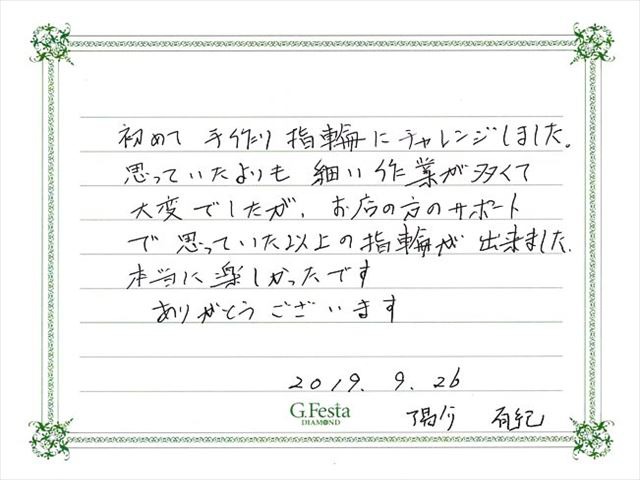 初めて 手作り 指輪にチャレンジしました。
思っていたよりも 細い作業が多くて
大変でしたが、お店の方のサポート
で 思っていた以上の指輪が 出来ました。
本当に楽しかったです
ありがとうございます
2019. 9. 26
G.Festa
DIAMOND
有紀